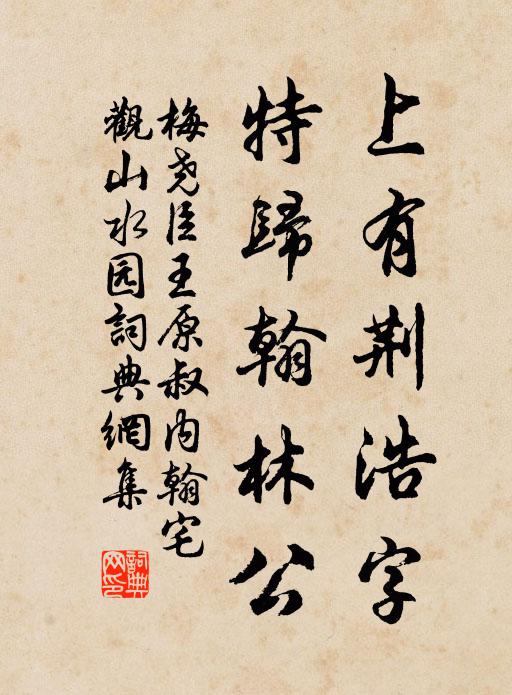 上有荆浩字
特歸翰林公
梅尧臣王原叔内翰宅
觀山水园詞典網集
詞典网印